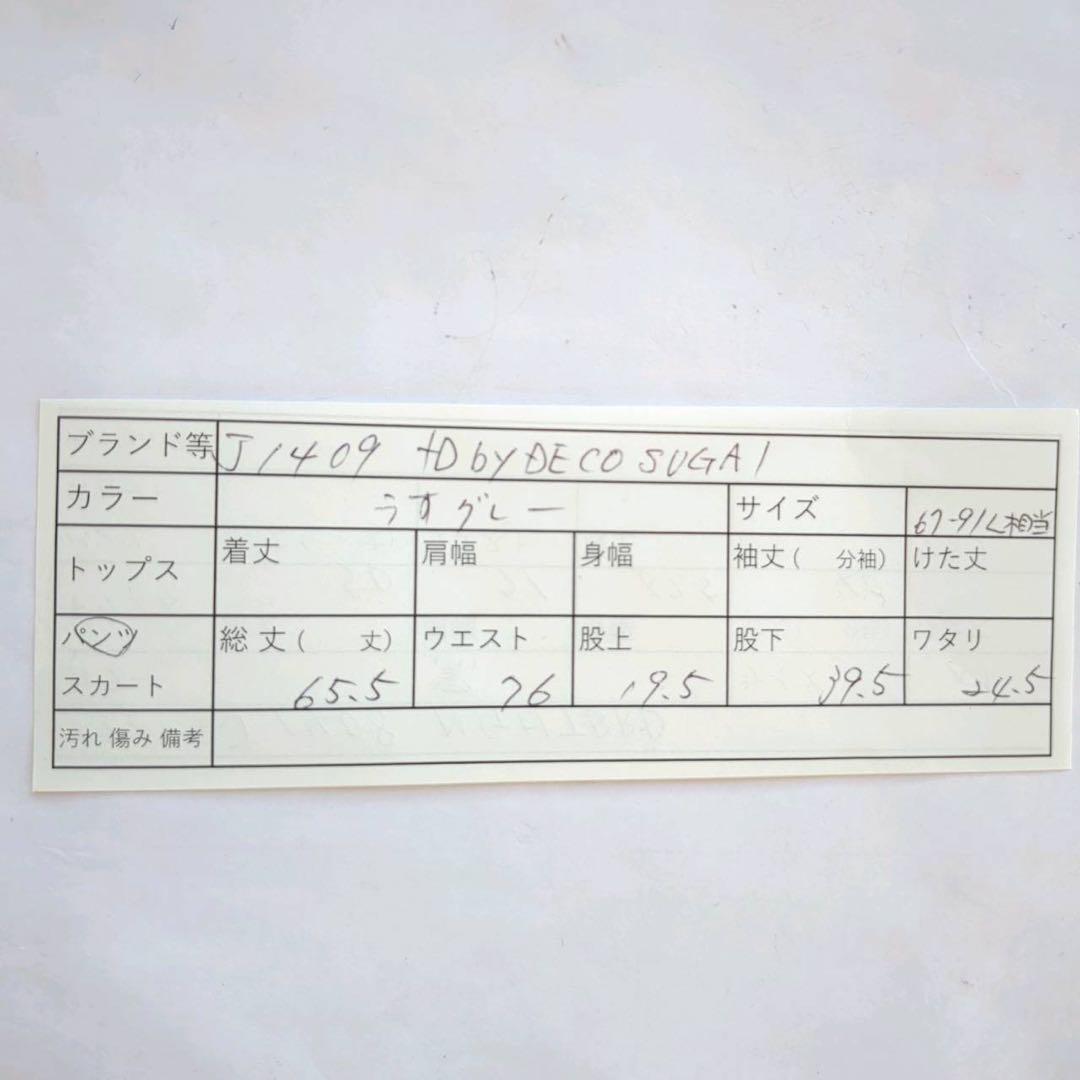 ブランド等 J1409 tD by DECO SUGAI
カラー うすグレー サイズ 67-91 L相当
トップス 着丈 肩幅 身幅 袖丈( 分袖) けた丈
パンツ 総丈( 丈) ウエスト 股上 股下 ワタリ
スカート 65.5 76 19.5 39.5 24.5
汚れ 傷み 備考